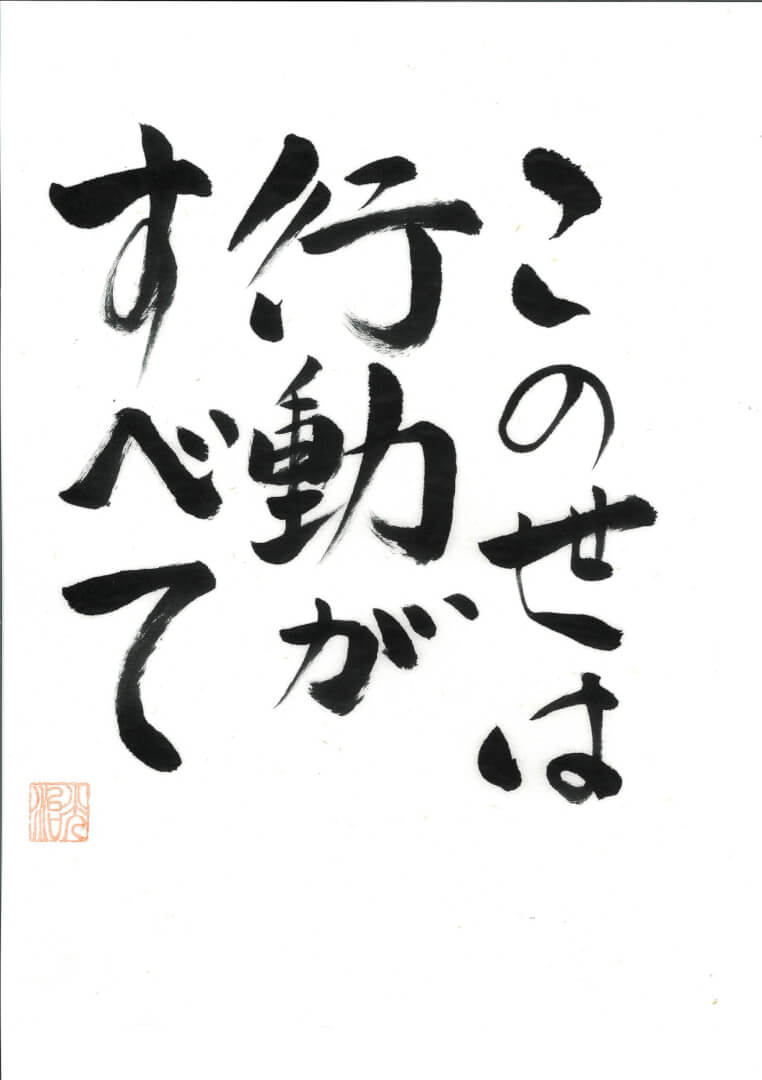 このせは
行動が
すべて